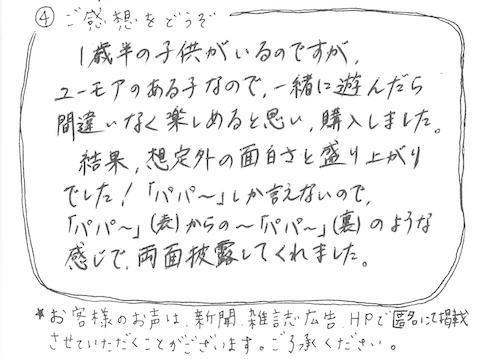 ④ ご感想をどうぞ
1歳半の子供がいるのですが、
ユーモアのある子なので、一緒に遊んだら
間違いなく楽しめると思い、購入しました。
結果、想定外の面白さと盛り上がり
でした！「パパ〜」しか言えないので、
「パパ〜」(表)からの〜「パパ〜」(裏)のような
感じで、両面披露してくれました。
*お客様のお声は、新聞、雑誌広告、HPで匿名にて掲載
させていただくことがございます。ご了承ください。